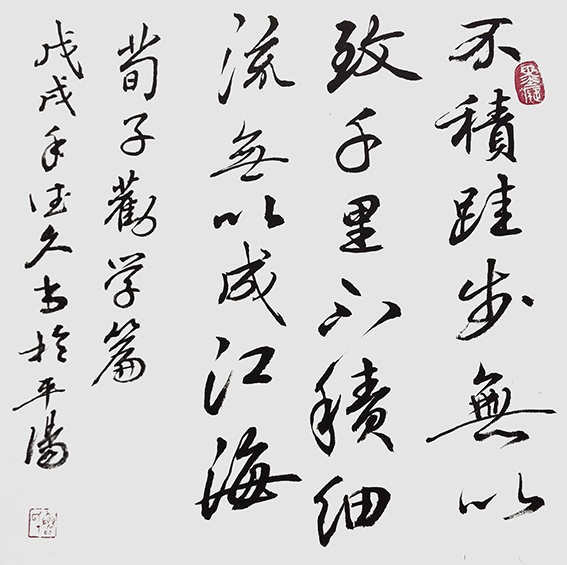 不積跬步無以
致千里不積細
流無以成江海
荀子勸学篇
戊戌年德久书於平陽